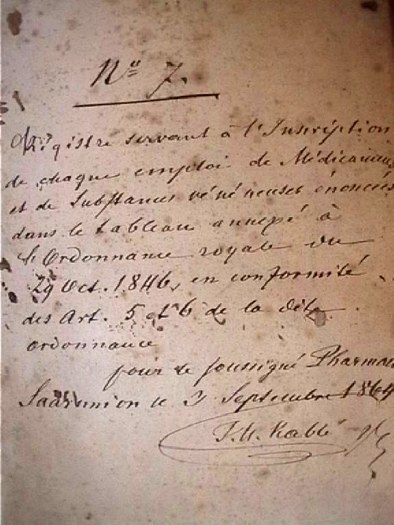 No 7.
Régistre servant à l'Inscription
de chaque emploi de Médicamens
et de Substances vénéneuses énoncées
dans le tableau annexé à
l'Ordonnance royale du
29 Oct. 1846, en conformité
des Art. 5 et 6 de la dite
ordonnance
pour le soussigné Pharmac
Saarunion le 3 Septembre 1864